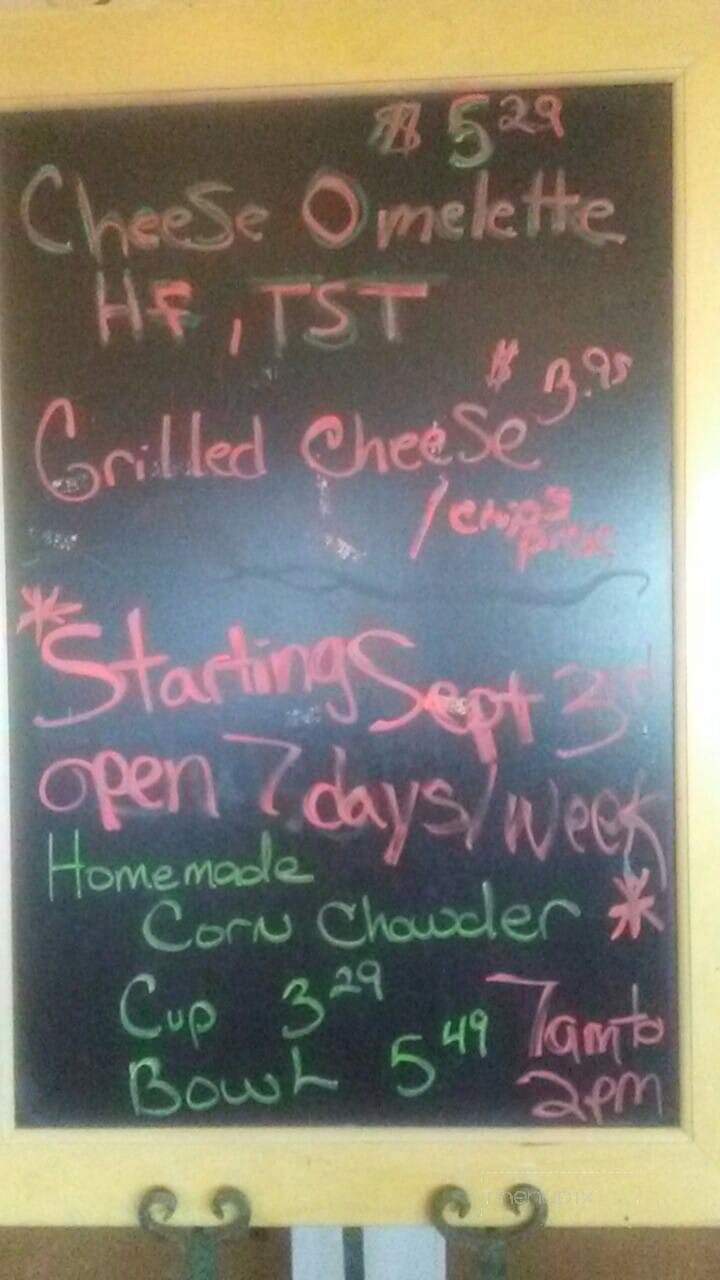 $ 5 29
Cheese Omelette
HF, TST
$ 3.95
Grilled Cheese
/ chips
*
Starting Sept 3rd
open 7 days/week
Homemade
Corn Chowder *
Cup 3 29
Bowl 5 49
7am to
2pm
menupix